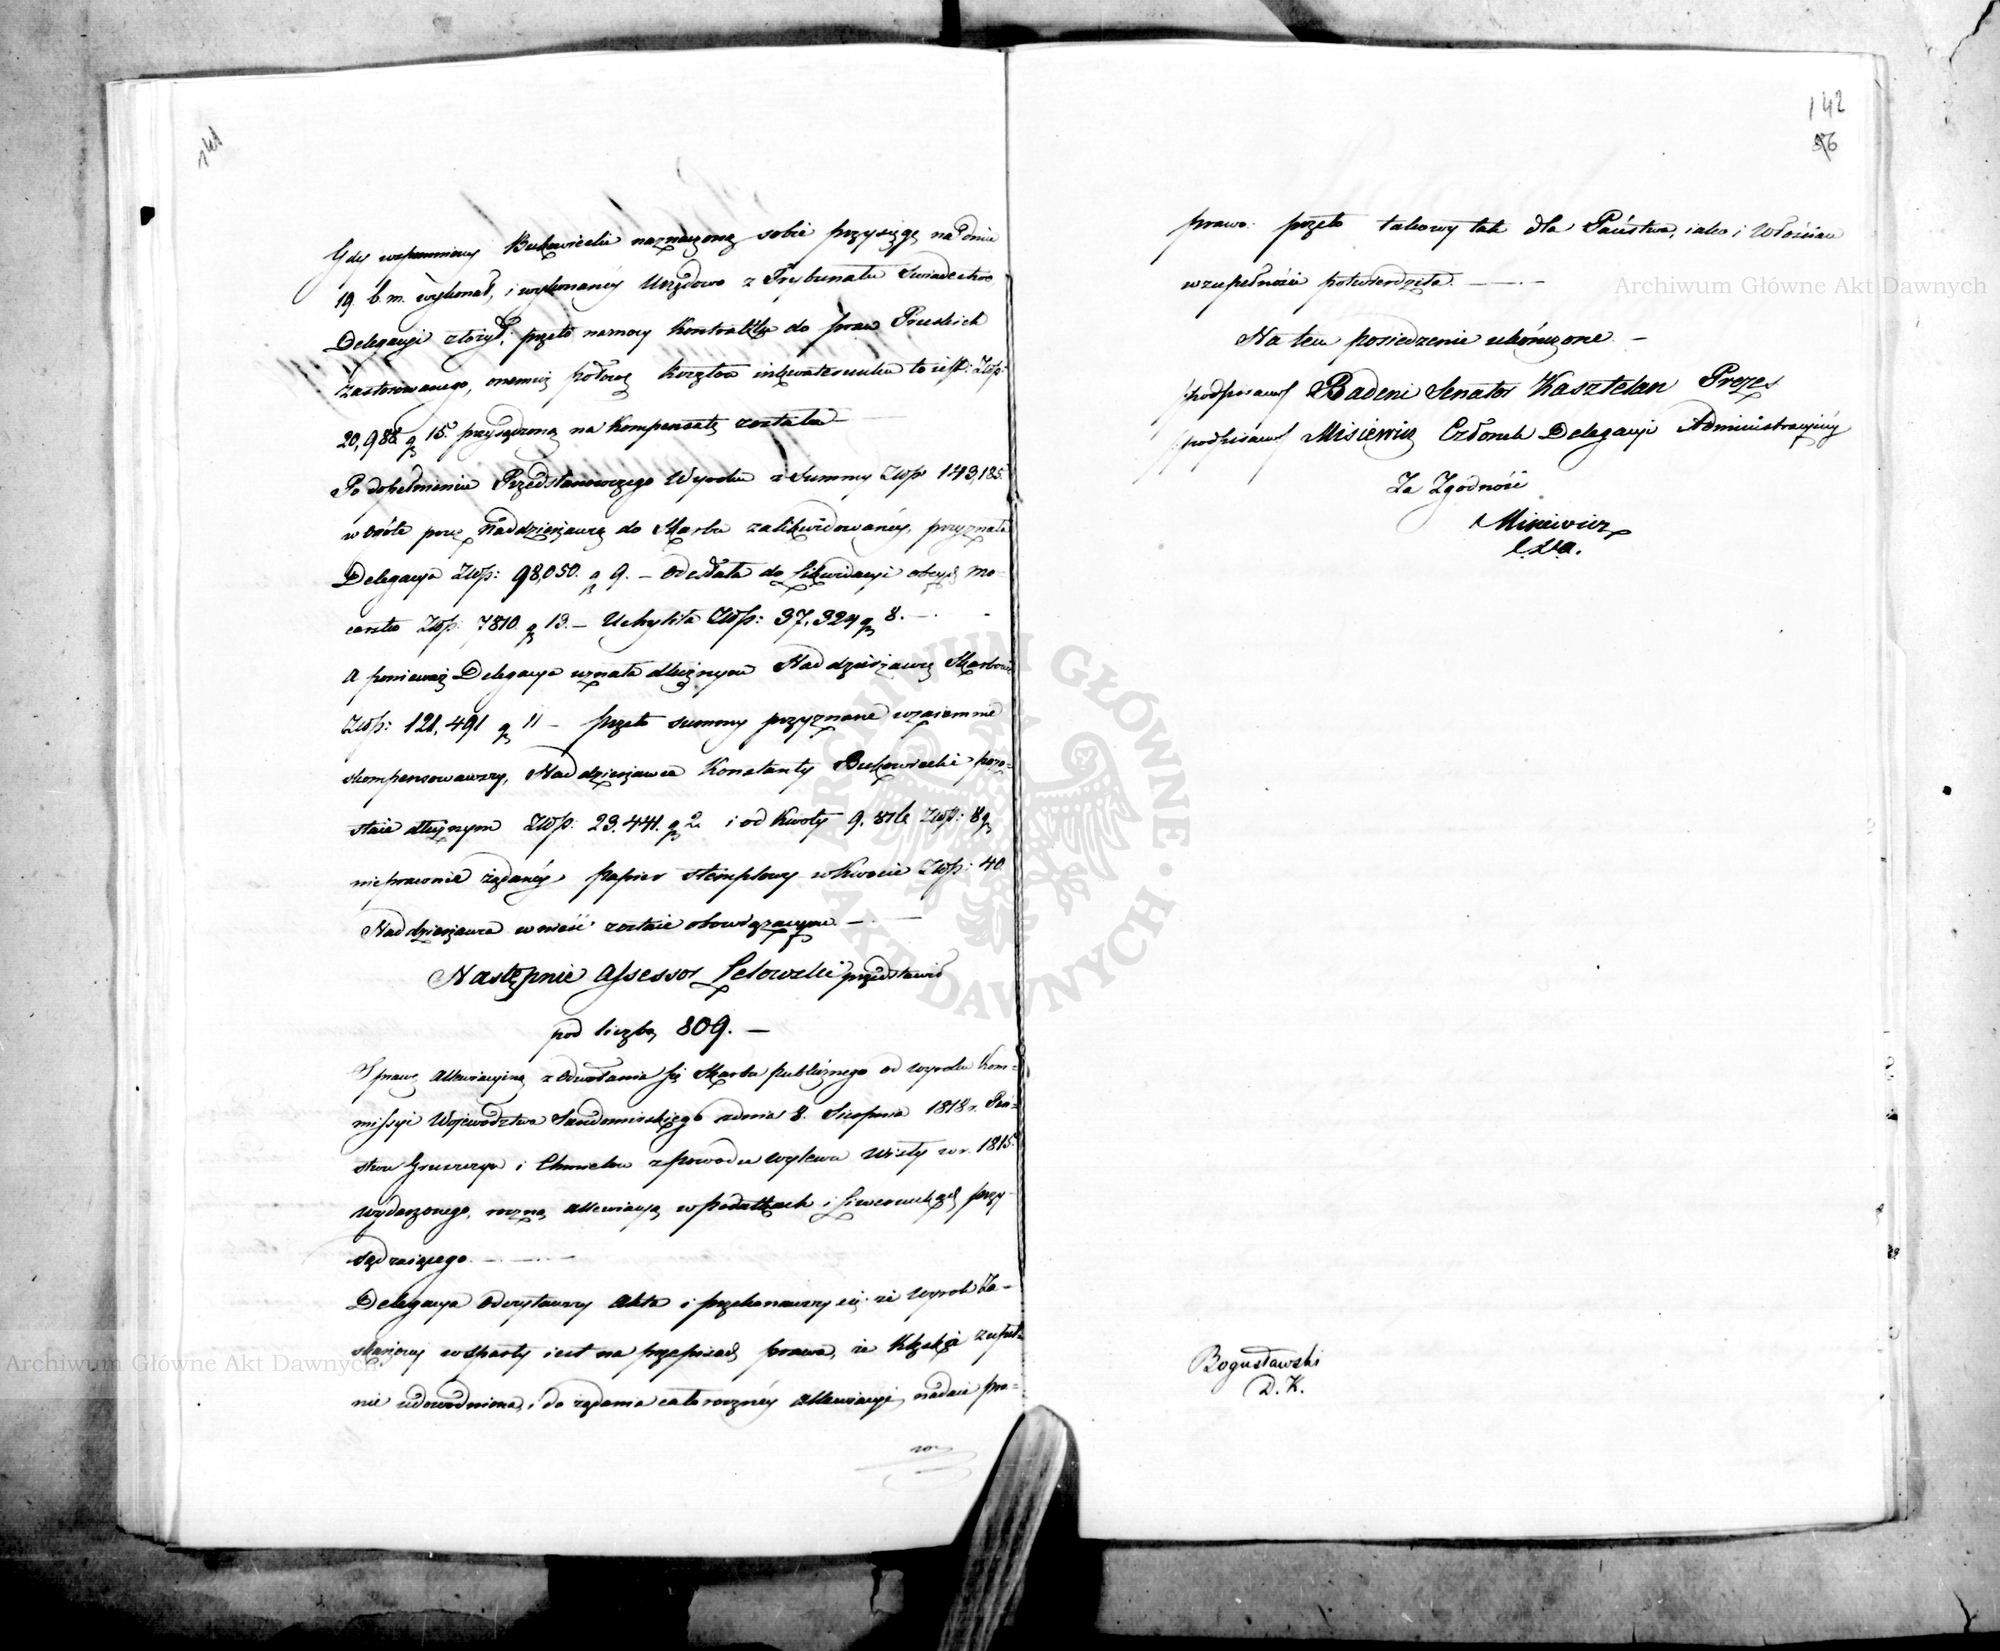 141
Gdy wspomniony Bukowiecki naznaczoną sobie przysięgę na dniu
19. b. m. wykonał, i wykonanéy Urzędowe z Trybunału Swiadectwo
Delegacyi złożył; przeto na mocy Kontraktu do praw Pruskich
zastosowanego, onemuż połowa kosztów inkwaterunku to iest: Złłp:
20,985 g 15. przysądzoną na kompensatę została —
Po dopełnieniu Przedstanowczego Wyroku z Summy Złłp 143,185.
w ogóle przez Naddzierżawcę do Skarbu zalikwidowanéy, przyznała
Delegacya Złłp: 98,050. g 9. — Odesłała do Likwidacyi obcych mo-
carstw Złłp: 7810. g 13. — Uchyliła Złłp: 37,324 g 8. —
A ponieważ Delegacya uznała dłużnym Naddzierżawcę Skarbowi
Złłp: 121,491 g 11 — przeto summy przyznane wzaiemnie
skompensowawszy, Naddzierżawca Konstanty Bukowiecki pozo-
staie dłużnym Złłp: 23.441. g 2. i od kwoty Złłp: 8 g
nieprawnie żądanéy papier stemplowy w kwocie Złłp: 40
Naddzierżawca wnieść zostaie obowiązanym — . —
Następnie Assessor Letowski przedstawił
pod liczbą 809. —
Sprawę allewiacyiną z odwołania się Skarbu publicznego od wyroku Kom-
missyi Województwa Sandomirskiego z dnia 8. Sierpnia 1818 r. Pań-
stwu Gruszczyn i Chmielów z powodu wylewu Wisły w r. 1815.
wydarzonego, roczną allewiacyą w podatkach i Liwerunkach przy-
sądzaiącego. — . —
Delegacya odczytawszy Akta i przekonawszy się: że wyrok Za-
skarżony wsparty iest na przepisach prawa, że klęska zupeł-
nie udowodniona, i do żądania całorocznéy allewiacyi, nadaie pra-
wo
142
86
prawo: przeto takowy tak dla Państwa, iako i Włościan
w zupełności potwierdziła. — . —
Na tem posiedzenie ukończone. —
/podpisano/ Badeni Senator Kasztelan Prezes
/podpisano/ Misiewicz Członek Delegacyi Administracyinéy
Za Zgodność
Misiewicz
Bogusławski
D. K.
Archiwum Główne Akt Dawnych
Archiwum Główne Akt Dawnych
ARCHIWUM GŁÓWNE · AKT DAWNYCH ·